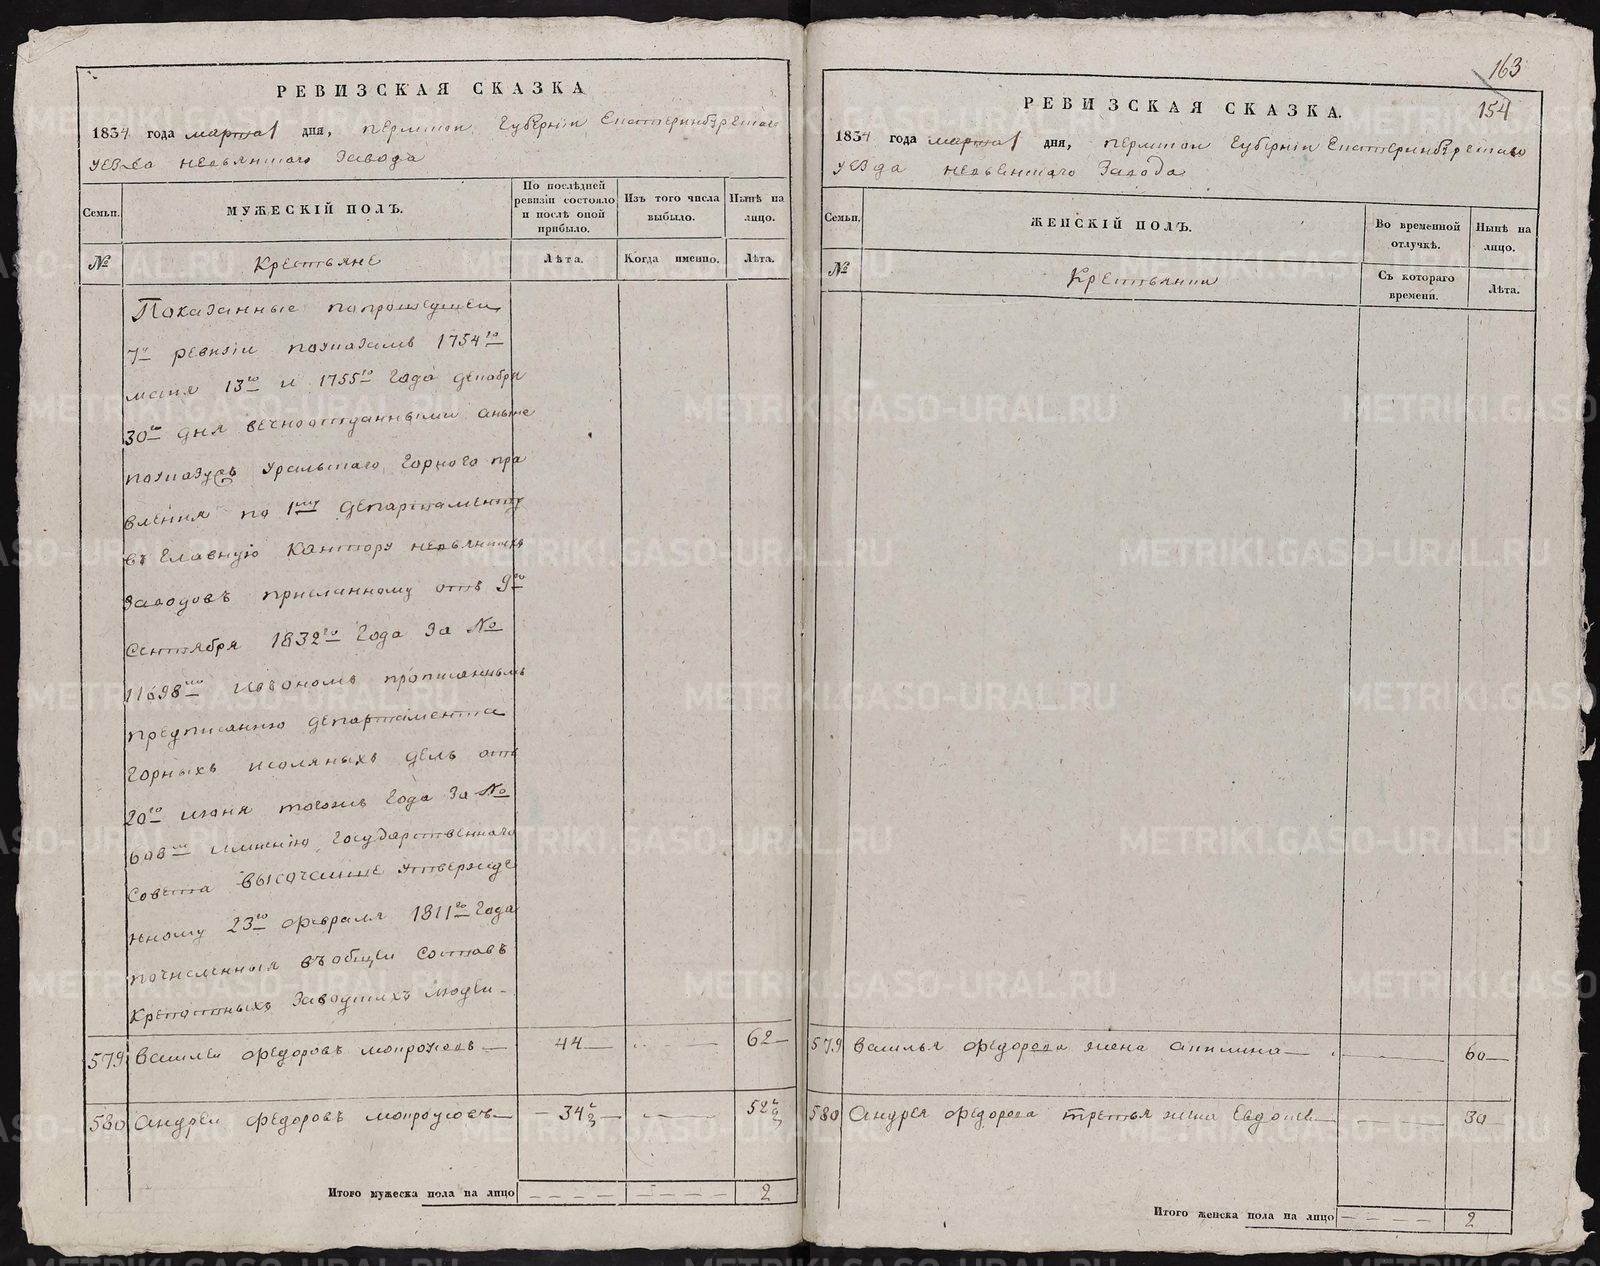 РЕВИЗСКАЯ СКАЗКА
1834 года марта 1 дня, пермской Губернiи Екатеринбургскаго
уезда невьянскаго Завода
Семьи.
МУЖЕСКIЙ ПОЛЪ.
По послѣдней ревизiи состояло и послѣ оной прибыло.
Изъ того числа выбыло.
Нынѣ на лицо.
№
Крестьяне
Лѣта.
Когда именно.
Лѣта.
Показанные попрошедшей
7й ревизiи поуказамъ 1754го
13го и 1755го Года декабря
30го дня вечноотданными аныне
поуказу Уральскаго Горного пра
вления по 1му департаменту
въ Главную кантору невьянскихъ
Заводовъ присланному отъ 9го
Сентября 1832го Года За №
11698мъ прописаннымъ
предписанию департамента
Горныхъ исоляныхъ делъ отъ
20го июня тогожъ Года За №
608мъ имнению Государственного
Совета высочайше утвержде
нному 23го февраля 1811го Года
почисленныя въобщей Составъ
Крепостныхъ Заводскихъ людей
579 василей федоровъ мокроусовъ 44 62
580 андрей федоровъ мокроусовъ 34 52
Итого мужеска пола на лицо 2
163
154
РЕВИЗСКАЯ СКАЗКА.
1834 года марта 1 дня, пермской Губернiи Екатеринбургскаго
уезда невьянскаго Завода
Семьи.
ЖЕНСКIЙ ПОЛЪ.
Во временной отлучкѣ.
Нынѣ на лицо.
№
Крестьянки
Съ котораго времени.
Лѣта.
579 василья федорова жена акилина 60
580 андрея федорова третья жена Евдокея 30
Итого женска пола на лицо 2
METRIKI.GASO-URAL.RU